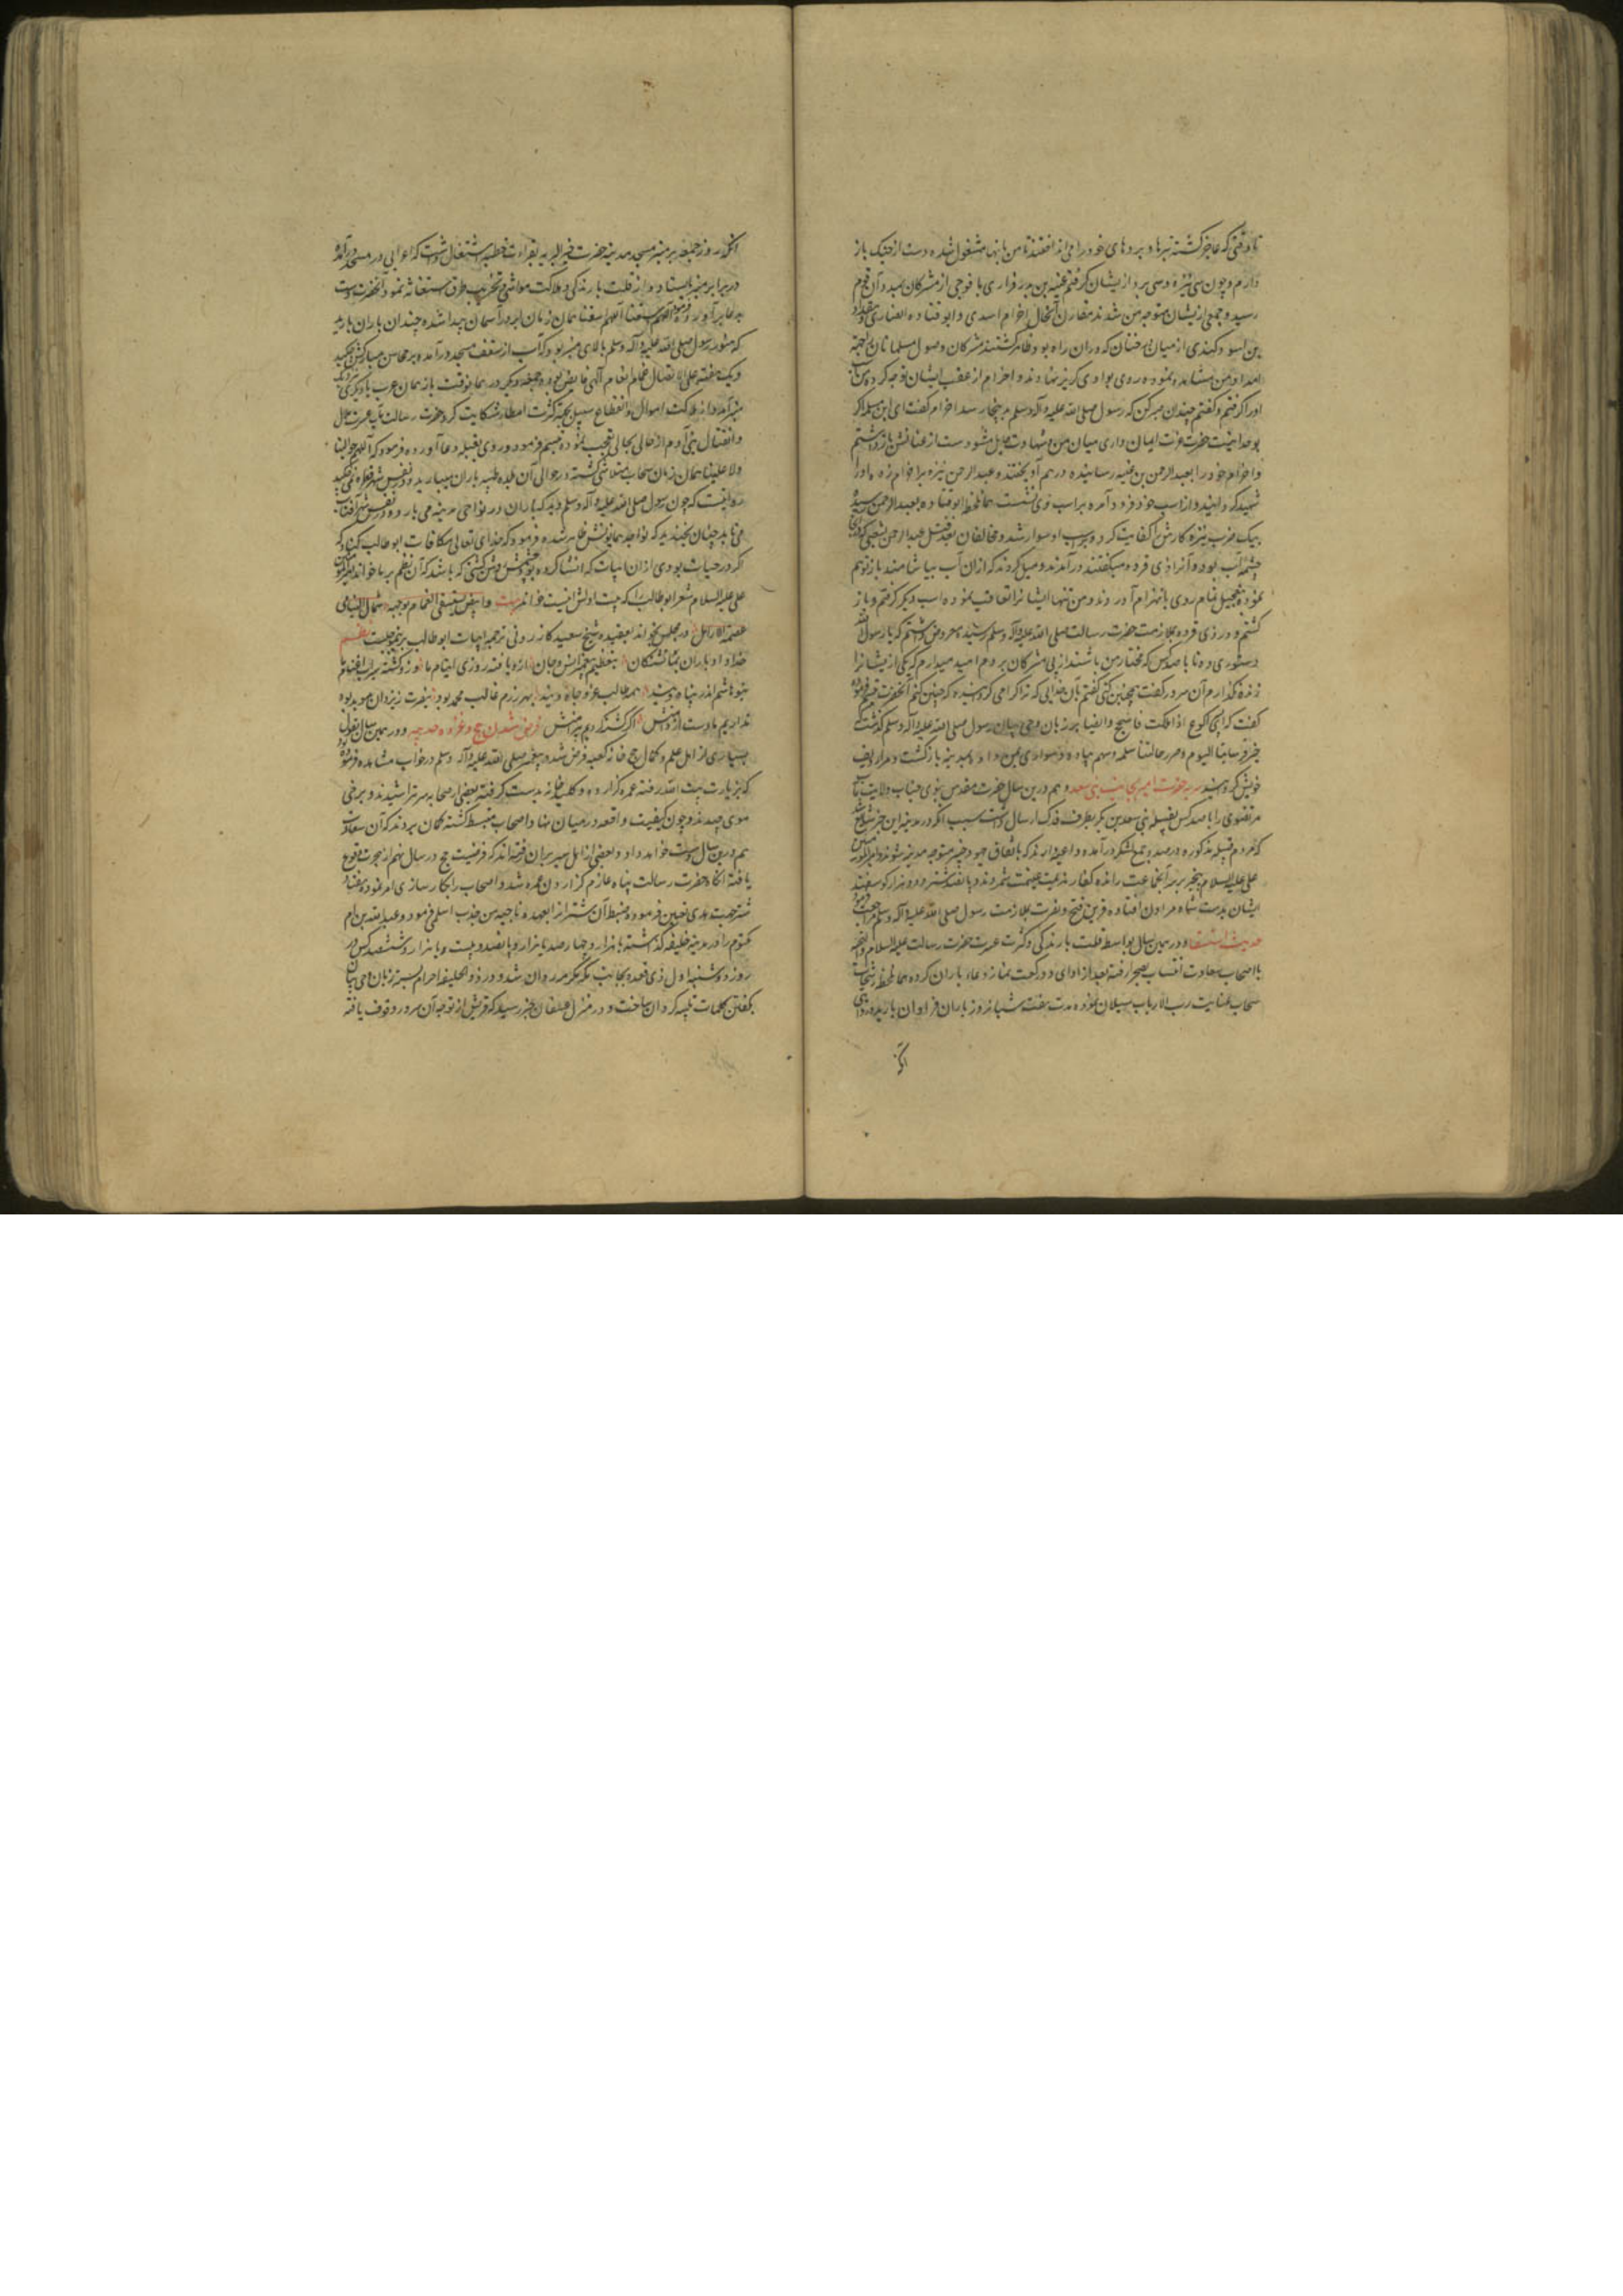 تا وقتی که عاجز گشته نیزها و بردهای خود را می انداختند تا من بانها مشغول شده دست از جنک باز
دارم و چون سی نیزه و سی برد از ایشان گرفتم عیینه بن بدر فزاری با فوجی از مشرکان بمدد آن قوم
رسید و جمعی از ایشان متوجه من شدند مقارن آنحال اخرام اسدی و ابو قتاده انصاری و مقداد
بن اسود کندی از میان درختان که دران راه بود ظاهر گشتند مشرکان وصول مسلمانان را بجهة
امداد من مشاهده نموده روی بوادی کریز نهادند و اخرام از عقب ایشان توجه کرده من
او را گرفتم و گفتم چندان صبر کن که رسول صلی الله علیه وآله وسلم برسد اخرام گفت ای ابن سلمه اکر
بوحدانیت حضرت عزت ایمان داری میان من و شهادت حایل مشو دست از عنانش باز داشتم
و اخرام خود را بعبد الرحمن بن عیینه رسانیده در هم آویختند و عبد الرحمن نیزه بر اخرام زده او را
شهید گردانید و از اسب خود فرود آمده بر اسب وی نشست همان لحظه ابو قتاده بعبد الرحمن رسیده
بیک ضرب نیزه کارش کفایت کرد و بر اسب او سوار شد و مخالفان بعد قتل عبد الرحمن بشعبی که در آن
چشمه آب بود و آنرا ذی قرده میگفتند درآمدند و میل کردند که ازان آب بیاشامند باز توهم
نموده بتعجیل تمام روی بانهزام آوردند و من تنها ایشانرا تعاقب نموده دو اسب دیگر گرفتم و باز
گشتم و در ذی قرده بملازمت حضرت رسالت صلی الله علیه وآله وسلم رسیده معروض داشتم که یا رسول الله
دستوری ده تا با صد کس که مختار من باشند از پی مشرکان بروم امید میدارم که یکی از ایشانرا
زنده نگذارم آن سرور گفت همچنین کنی گفتم بآن خدایی که ترا گرامی گردانیده که چنین کنم آنحضرت تبسم فرموده
گفت که ابن اکوع اذا ملکت فاسجح و ایضا بر زبان وحی بیان رسول صلی الله علیه وآله وسلم گذشت که
خیر فرساننا الیوم و خیر رجالتنا سلمه و سهم پیاده و سواری بمن داد و بمدینه بازگشت و مرا ردیف
خویش گردانید سریه حضرت امیر بجانب بنی سعد و هم درین سال حضرت مقدس نبوی جناب ولایت مآب
مرتضوی را با صد کس بقبیله بنی سعد بن بکر بطرف فدک ارسال داشت سبب آنکه در مدینه این خبر شایع شد
که مردم قبیله مذکوره درصدد جمع لشکر درآمده داعیه دارند که باتفاق یهود خیبر متوجه مدینه شوند و امیر المؤمنین
علی علیه السلام بیخبر بر سر آنجماعت رانده کفار هزیمت غنیمت شمردند و پانصد شتر و دو هزار گوسفند
ایشان بدست سپاه مراون افتاده قرین فتح و نصرت بملازمت رسول صلی الله علیه وآله وسلم مراجعت فرمود
حدیث استسقا و در همین سال بواسطه قلت بارندکی و کثرت عسرت حضرت رسالت علیه السلام والتحیه
با اصحاب سعادت انتساب بصحرا رفته بعد از ادای دو رکعت نماز دعاء باران کرده همان لحظه رشحات
سحاب عنایت رب الارباب سیلان نموده مدت هفت شبانروز باران فراوان بارید و روایتی
آنکه
آنکه روز جمعه بر منبر مسجد مدینه حضرت خیر البریه بقراءت خطبه اشتغال داشت که اعرابی در مسجد درآمد
در برابر منبر بایستاد و از قلت بارندکی و هلاکت مواشی و تخریب طرق استغاثه نمود آنحضرت دست
بدعا برآورده فرمود اللهم اسقنا اللهم اسقنا همان زمان ابر در آسمان پیدا شده چندان باران بارید
که هنوز رسول صلی الله علیه وآله وسلم بالای منبر بود که آب از سقف مسجد درآمده بر محاسن مبارکش میچکید
و یک هفته علی الاتصال غمام انعام آلهی فایض بود و جمعه دیگر در همان وقت باز همان عرب یا دیگری نزدیک
منبر آمد و از هلاکت اموال و انقطاع سبیل بجهة کثرت امطار شکایت کرد حضرت رسالت مآب از سرعت ملال
و انتقال بنی آدم از حالی بحالی تعجب نموده تبسم فرمود و روی بقبله دعا آورده فرمود که اللهم حوالینا
ولا علینا همان زمان سحاب متلاشی گشته در حوالی آن بلده طیبه باران میبارید و در نفس شهر قطره نمیچکید
روایتست که چون رسول صلی الله علیه وآله وسلم دید که باران در نواحی مدینه می بارد و در نفس شهر آفتاب
می تابد چنان بخندید که نواجد همایونش ظاهر شده فرمود که خدای تعالی مکافات ابو طالب کناد که
اکر در حیات بودی از ان ابیات که انشا کرده بود چشمش روشن گشتی که باشد که آن نظم بر ما خواند امیر المؤمنین
علی علیه السلام شعر ابو طالب را که بیت اولش اینست خواند بیت و ابیض یستسقی الغمام بوجهه ثمال الیتامی
عصمة الارامل در مجلس بخواند بعقیده شیخ سعید کازرونی ترجمه ابیات ابو طالب برینموجبست نظم
خدا داد باران بما تشنکان بتعظیم پیغمبر انس و جان ازو یافته روزی ایتام ما وزو گشته سیراب اغنام ما
بنو هاشم اندر پناه ویند همه طالب عز و جاه ویند بهر رزم غالب محمد بود بنصرت ز یزدان موید بود
نداریم ما دست از دامنش اکر کشته کردیم پیرامنش فرض شدن حج و غزوه حدیبیه و در همین سال بقول
بسیاری از اهل علم و کمال حج خانه کعبه فرض شد و پیغمبر صلی الله علیه وآله وسلم در خواب مشاهده فرموده بود
که بزیارت بیت الله رفته عمره گزارده و کلید خانه بدست گرفته بعضی از صحابه سر تراشیدند و برخی
موی چیدند و چون کیفیت واقعه در میان نهاد اصحاب منبسط گشته گمان بردند که آن سعادت
هم درین سال دست خواهد داد و بعضی از اهل سیر بران رفته اند که فرضیت حج در سال نهم از هجرت وقوع
یافته القصه حضرت رسالت پناه عازم گزاردن عمره شد و اصحاب را بکار سازی امر نموده هفتاد
شتر جهت هدی تعیین فرمود و ضبط آن شتران را بعهده ناجیه بن جندب اسلمی فرمود و عبد الله بن ام
مکتوم را در مدینه خلیفه گذاشته با هزار و چهار صد یا هزار و پانصد و بیست و یا هزار و ششصد کس در
روز دوشنبه اول ذی قعده بجانب مکه مکرمه روان شد و در ذو الحلیفه احرام بسته زبان وحی بیان
بگفتن کلمات تلبیه گردان ساخت و در منزل عسفان خبر رسید که قریش از توجه آن سرور وقوف یافته